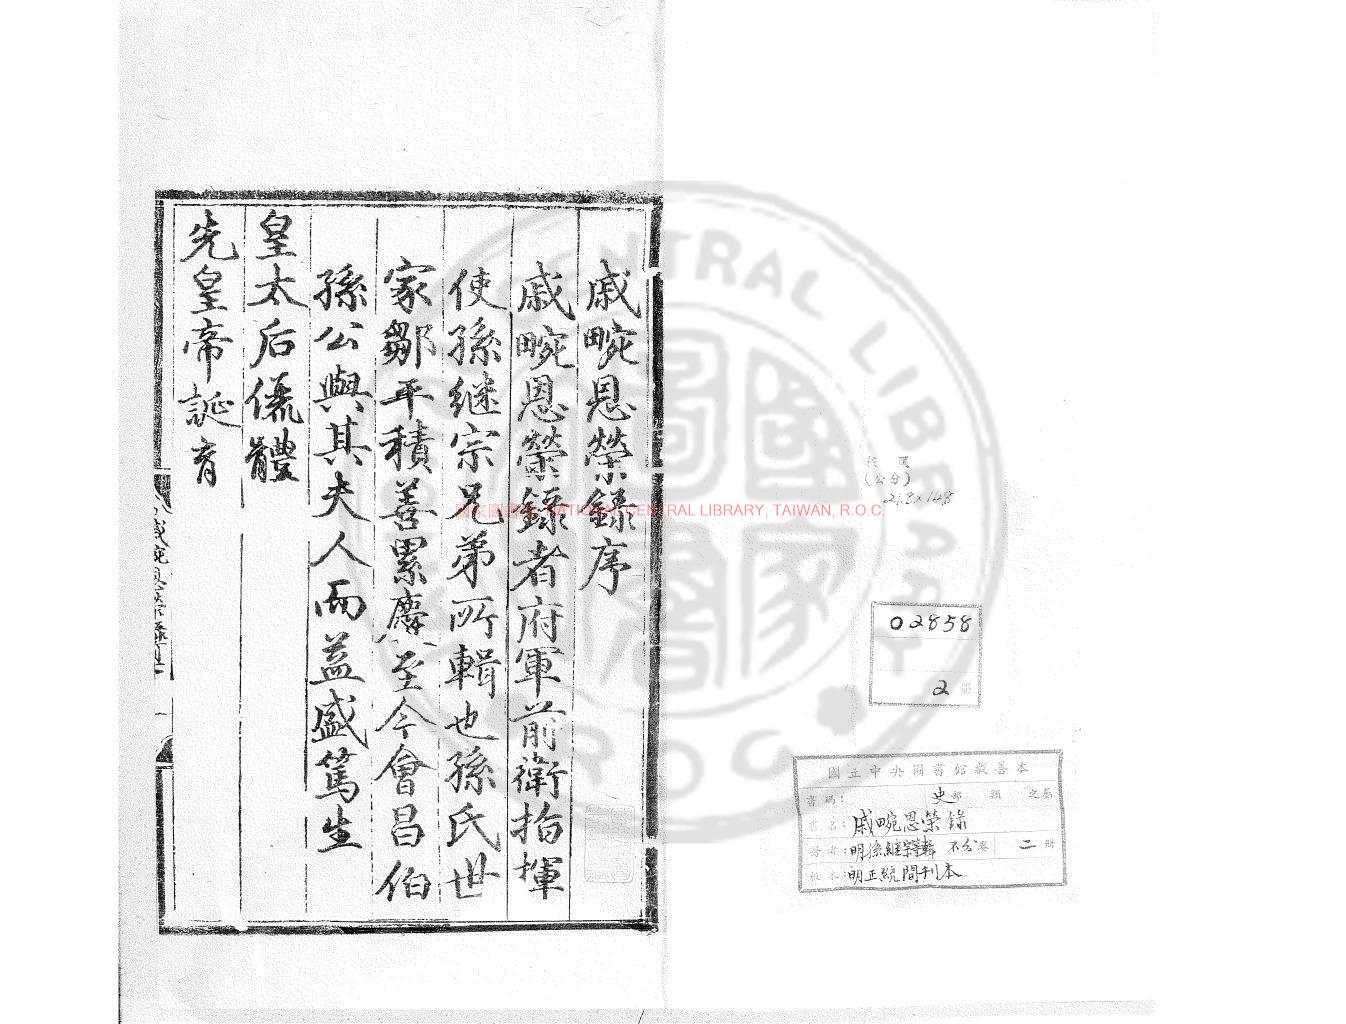 戚畹恩榮錄序
戚畹恩榮錄者府軍前衛指揮
使孫继宗兄弟所輯也孫氏世
家鄒平積善累慶至今會昌伯
孫公與其夫人而益盛篤生
皇太后儷體
先皇帝誕育
國家圖書館 NATIONAL CENTRAL LIBRARY, TAIWAN, R.O.C.
NATIONAL CENTRAL LIBRARY
R.O.C.
(公分)
21.8×14.8
02858
2 冊
國立中央圖書館藏善本
書碼: 史部 類 之屬
書名: 戚畹恩榮錄
著者: 明孫継宗等輯 不分卷 二冊
版本: 明正統間刊本